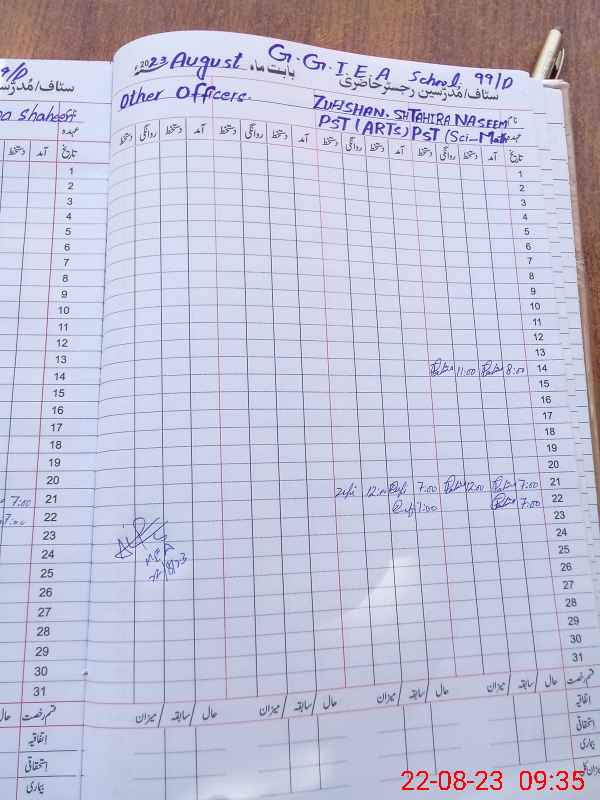 G.G.I.E.A School 99/D
2023 August بابت ماہ
سٹاف/مُدرّسین رجسٹر حاضری
Other Officers.
ZUFISHAN.SH TAHIRA NASEEM نام
PST (ARTS) PST (Sci-Math عہدہ
تاریخ آمد دستخط روانگی دستخط آمد دستخط روانگی دستخط آمد دستخط روانگی دستخط آمد دستخط روانگی دستخط
1
2
3
4
5
6
7
8
9
10
11
12
13
11:00 8:00 14
15
16
17
18
19
20
Zufi 12:00 Zufi 7:00 12:00 7:00 21
Zufi 7:00 7:00 22
23
24
25
26
27
28
29
30
31
قسم رخصت حال / سابقہ / میزان حال / سابقہ / میزان حال / سابقہ / میزان حال / سابقہ / میزان
اتفاقیہ
استحقاقی
بیماری
9/D
سٹاف/مُدرّسین
na shaheen نام
عہدہ
تاریخ آمد دستخط
1
2
3
4
5
6
7
8
9
10
11
12
13
14
15
16
17
18
19
20
7:00 21
7:00 22
23
24
25
26
27
28
29
30
31
قسم رخصت حال
اتفاقیہ
استحقاقی
بیماری
22-08-23 09:35